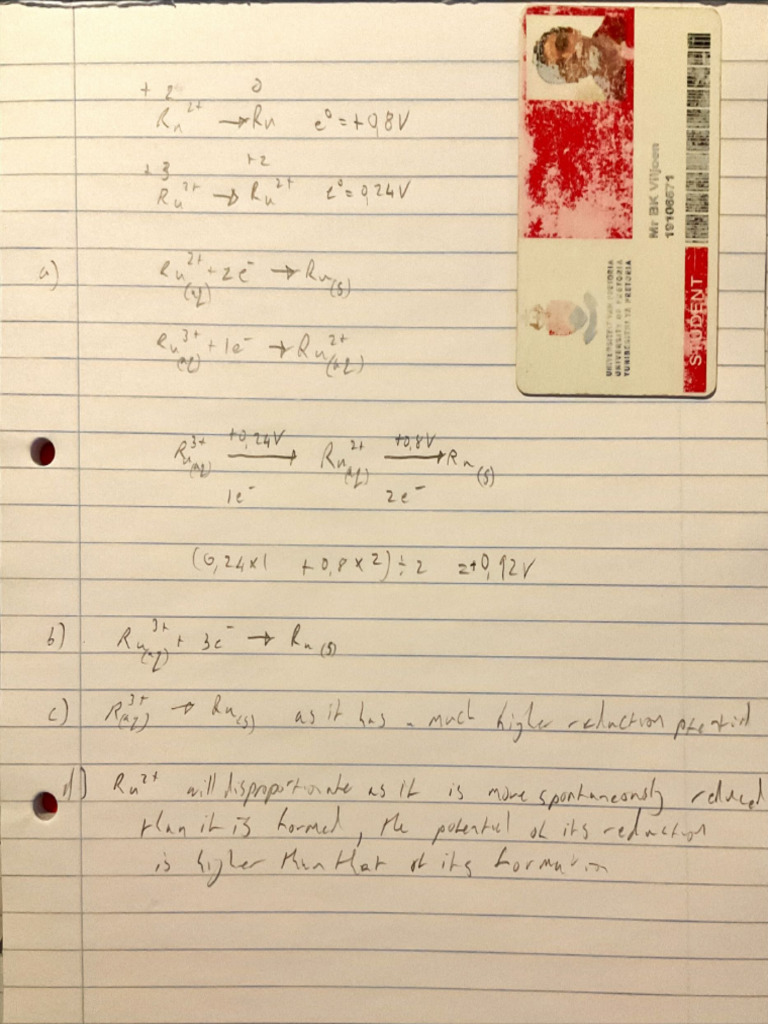 +2 0
Ru²⁺ → Ru e° = +0,8V
+3 +2
Ru³⁺ → Ru²⁺ e° = 0,24V
a) Ru²⁺(aq) + 2e⁻ → Ru(s)
Ru³⁺(aq) + 1e⁻ → Ru²⁺(aq)
+0,24V +0,8V
Ru³⁺(aq) → Ru²⁺(aq) → Ru(s)
1e⁻ 2e⁻
(0,24×1 + 0,8×2) ÷ 2 = +0,92V
b) Ru³⁺(aq) + 3e⁻ → Ru(s)
c) R³⁺(aq) → Ru(s) as it has a much higher reduction potential
d) Ru²⁺ will disproportionate as it is more spontaneously reduced
than it is formed, the potential of its reduction
is higher than that of its formation
Mr BK Viljoen
19106871
UNIVERSITEIT VAN PRETORIA
UNIVERSITY OF PRETORIA
YUNIBESITHI YA PRETORIA
STUDENT